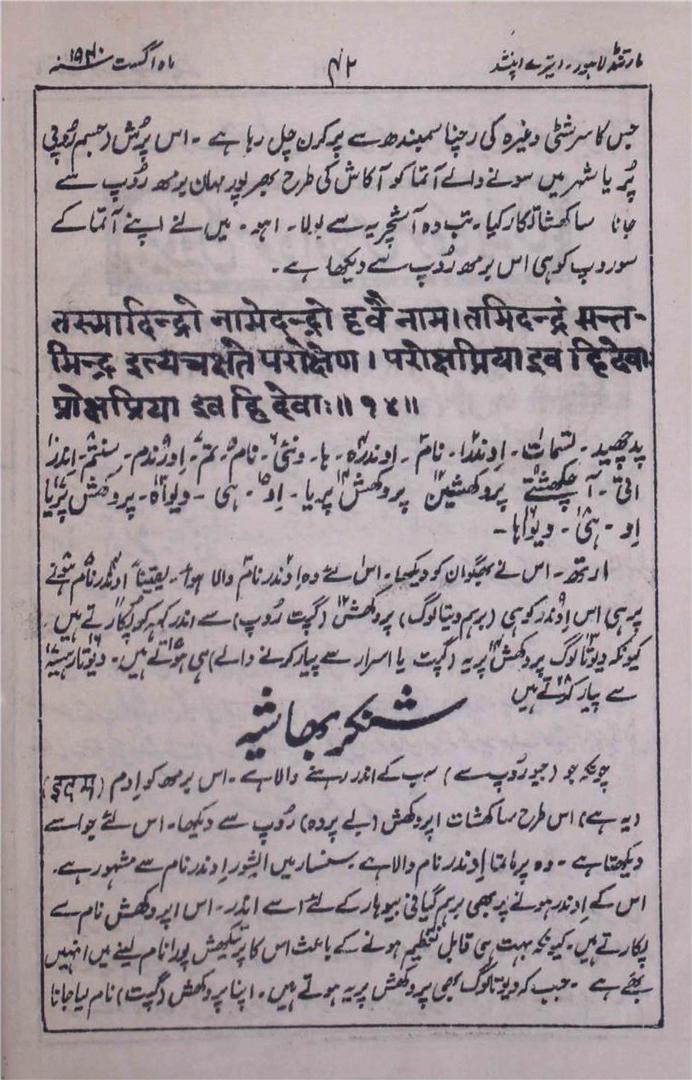 مارتنڈ لاہور۔ ایترے اپنشد ۴۲ ماہ اگست ۱۹۴۰ سنہ
جس کا سرشٹی وغیرہ کی رچنا سمبندھ سے پرکرن چل رہا ہے۔ اس پُرش (جسم رُوپی
پُر یا شہر میں سونے والے آتما کو آکاش کی طرح بھرپور مہان برمھ رُوپ سے
جانا ساکھشاتکار کیا۔ تب وہ آشچریہ سے بولا۔ اہو۔ میں نے اپنے آتما کے
سوروپ کو ہی اس برمھ رُوپ سے دیکھا ہے۔
तस्मादिन्द्रो नामेदन्द्रो हवै नाम। तमिदन्द्रं सन्त-
मिन्द्र इत्यचक्षते परोक्षेण। परोक्षप्रिया इव हि देवाः
प्रोक्षप्रिया इव हि देवाः॥ १४॥
پدچھید۔ تسمات۔ اِدندرا۔ نام۔ اِدندرہ۔ ہا۔ وئی۔ نام۔ تم۔ اِدندرم۔ سنتم۔ اِندرا
اتی۔ آچکھشتے پروکھشین پروکھش پریا۔ اِو۔ ہی۔ دیواہ۔ پروکھش پریا
اِو۔ ہی۔ دیواہا۔
ارتھ۔ اس نے بھگوان کو دیکھا۔ اس لئے وہ اِدندر نام والا ہوا۔ یقیناً اِدندر نام ہونے
پر ہی اس اِدندر کو ہی (برہم دیتا لوگ) پروکھش (گپت رُوپ) سے اندر کہہ کر پکارتے ہیں۔
کیونکہ دیوتا لوگ پروکھش پریہ (گپت یا اسرار سے پیار کرنے والے) ہی ہوتے ہیں۔ دیوتا رہسیہ
سے پیار کرتے ہیں
شنکر بھاشیہ
چونکہ جو (جیو رُوپ سے) سب کے اندر رہنے والا ہے۔ اس برمھ کو اِدم (इदम)
(یہ ہے) اس طرح ساکھشات اپروکھش (بے پردہ) رُوپ سے دیکھا۔ اس لئے جو اسے
دیکھتا ہے۔ وہ پرماتما اِدندر نام والا ہے۔ سنسار میں ایشور اِدندر نام سے مشہور ہے۔
اس کے اِدندر ہونے پر بھی برہم گیانی بیوہار کے لئے اسے اِندر۔ اس اپروکھش نام سے
پکارتے ہیں۔ کیونکہ بہت ہی قابل تعظیم ہونے کے باعث اس کا پرتیکھش پورا نام لینے میں انہیں
بھَے ہے۔ جب کہ دیوتا لوگ بھی پروکھش پریہ ہوتے ہیں۔ اپنا پروکھش (گپت) نام لیا جانا